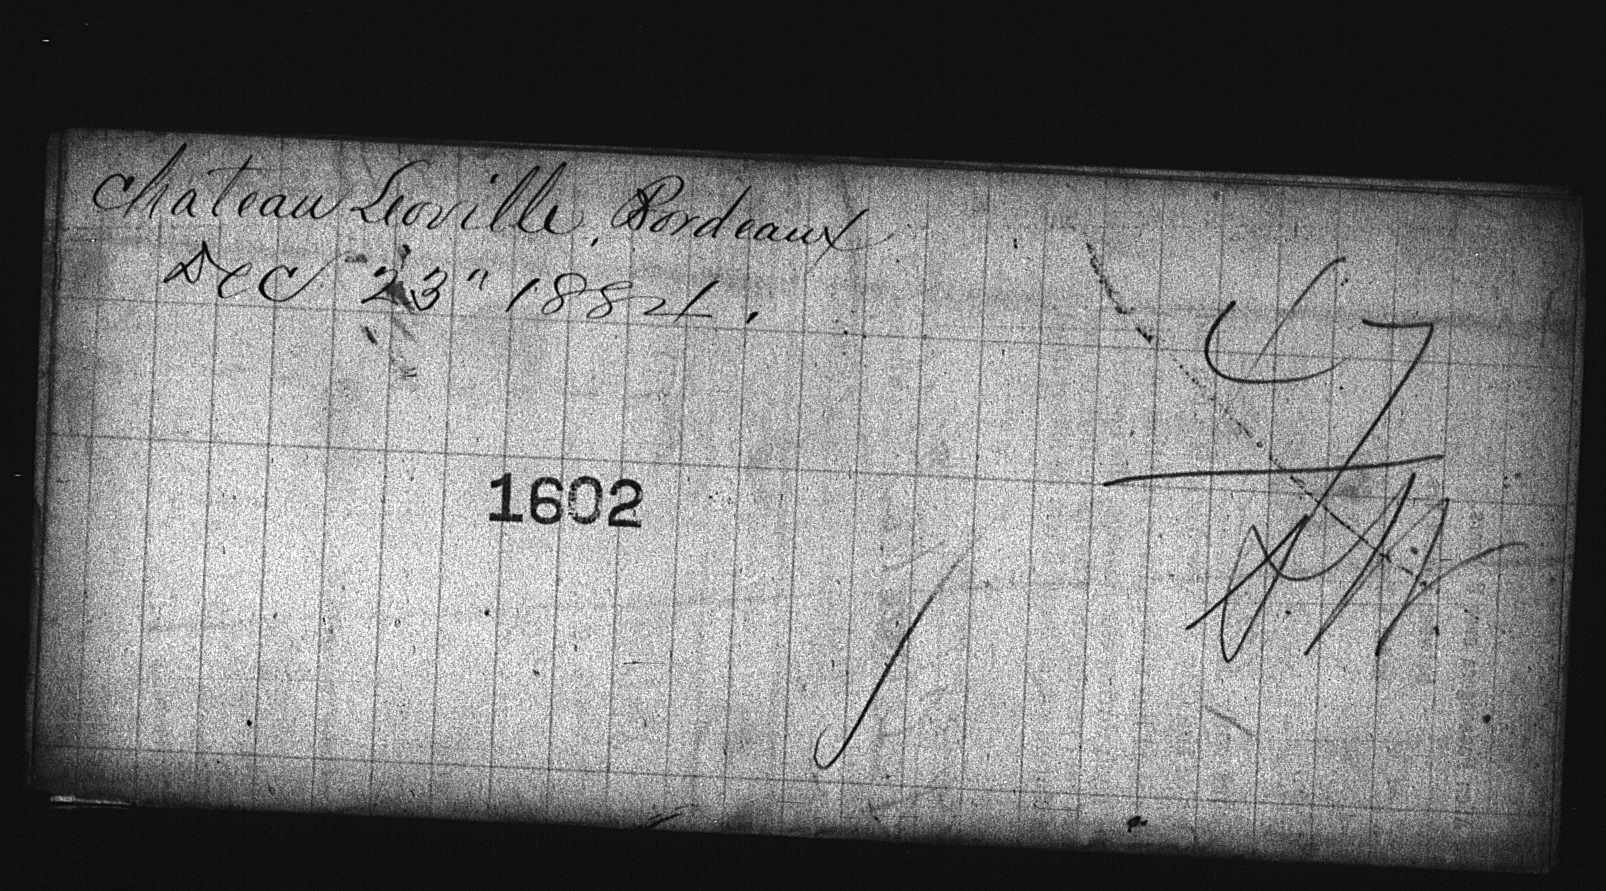 Chateau Leoville, Bordeaux
Dec 23" 1884.
1602